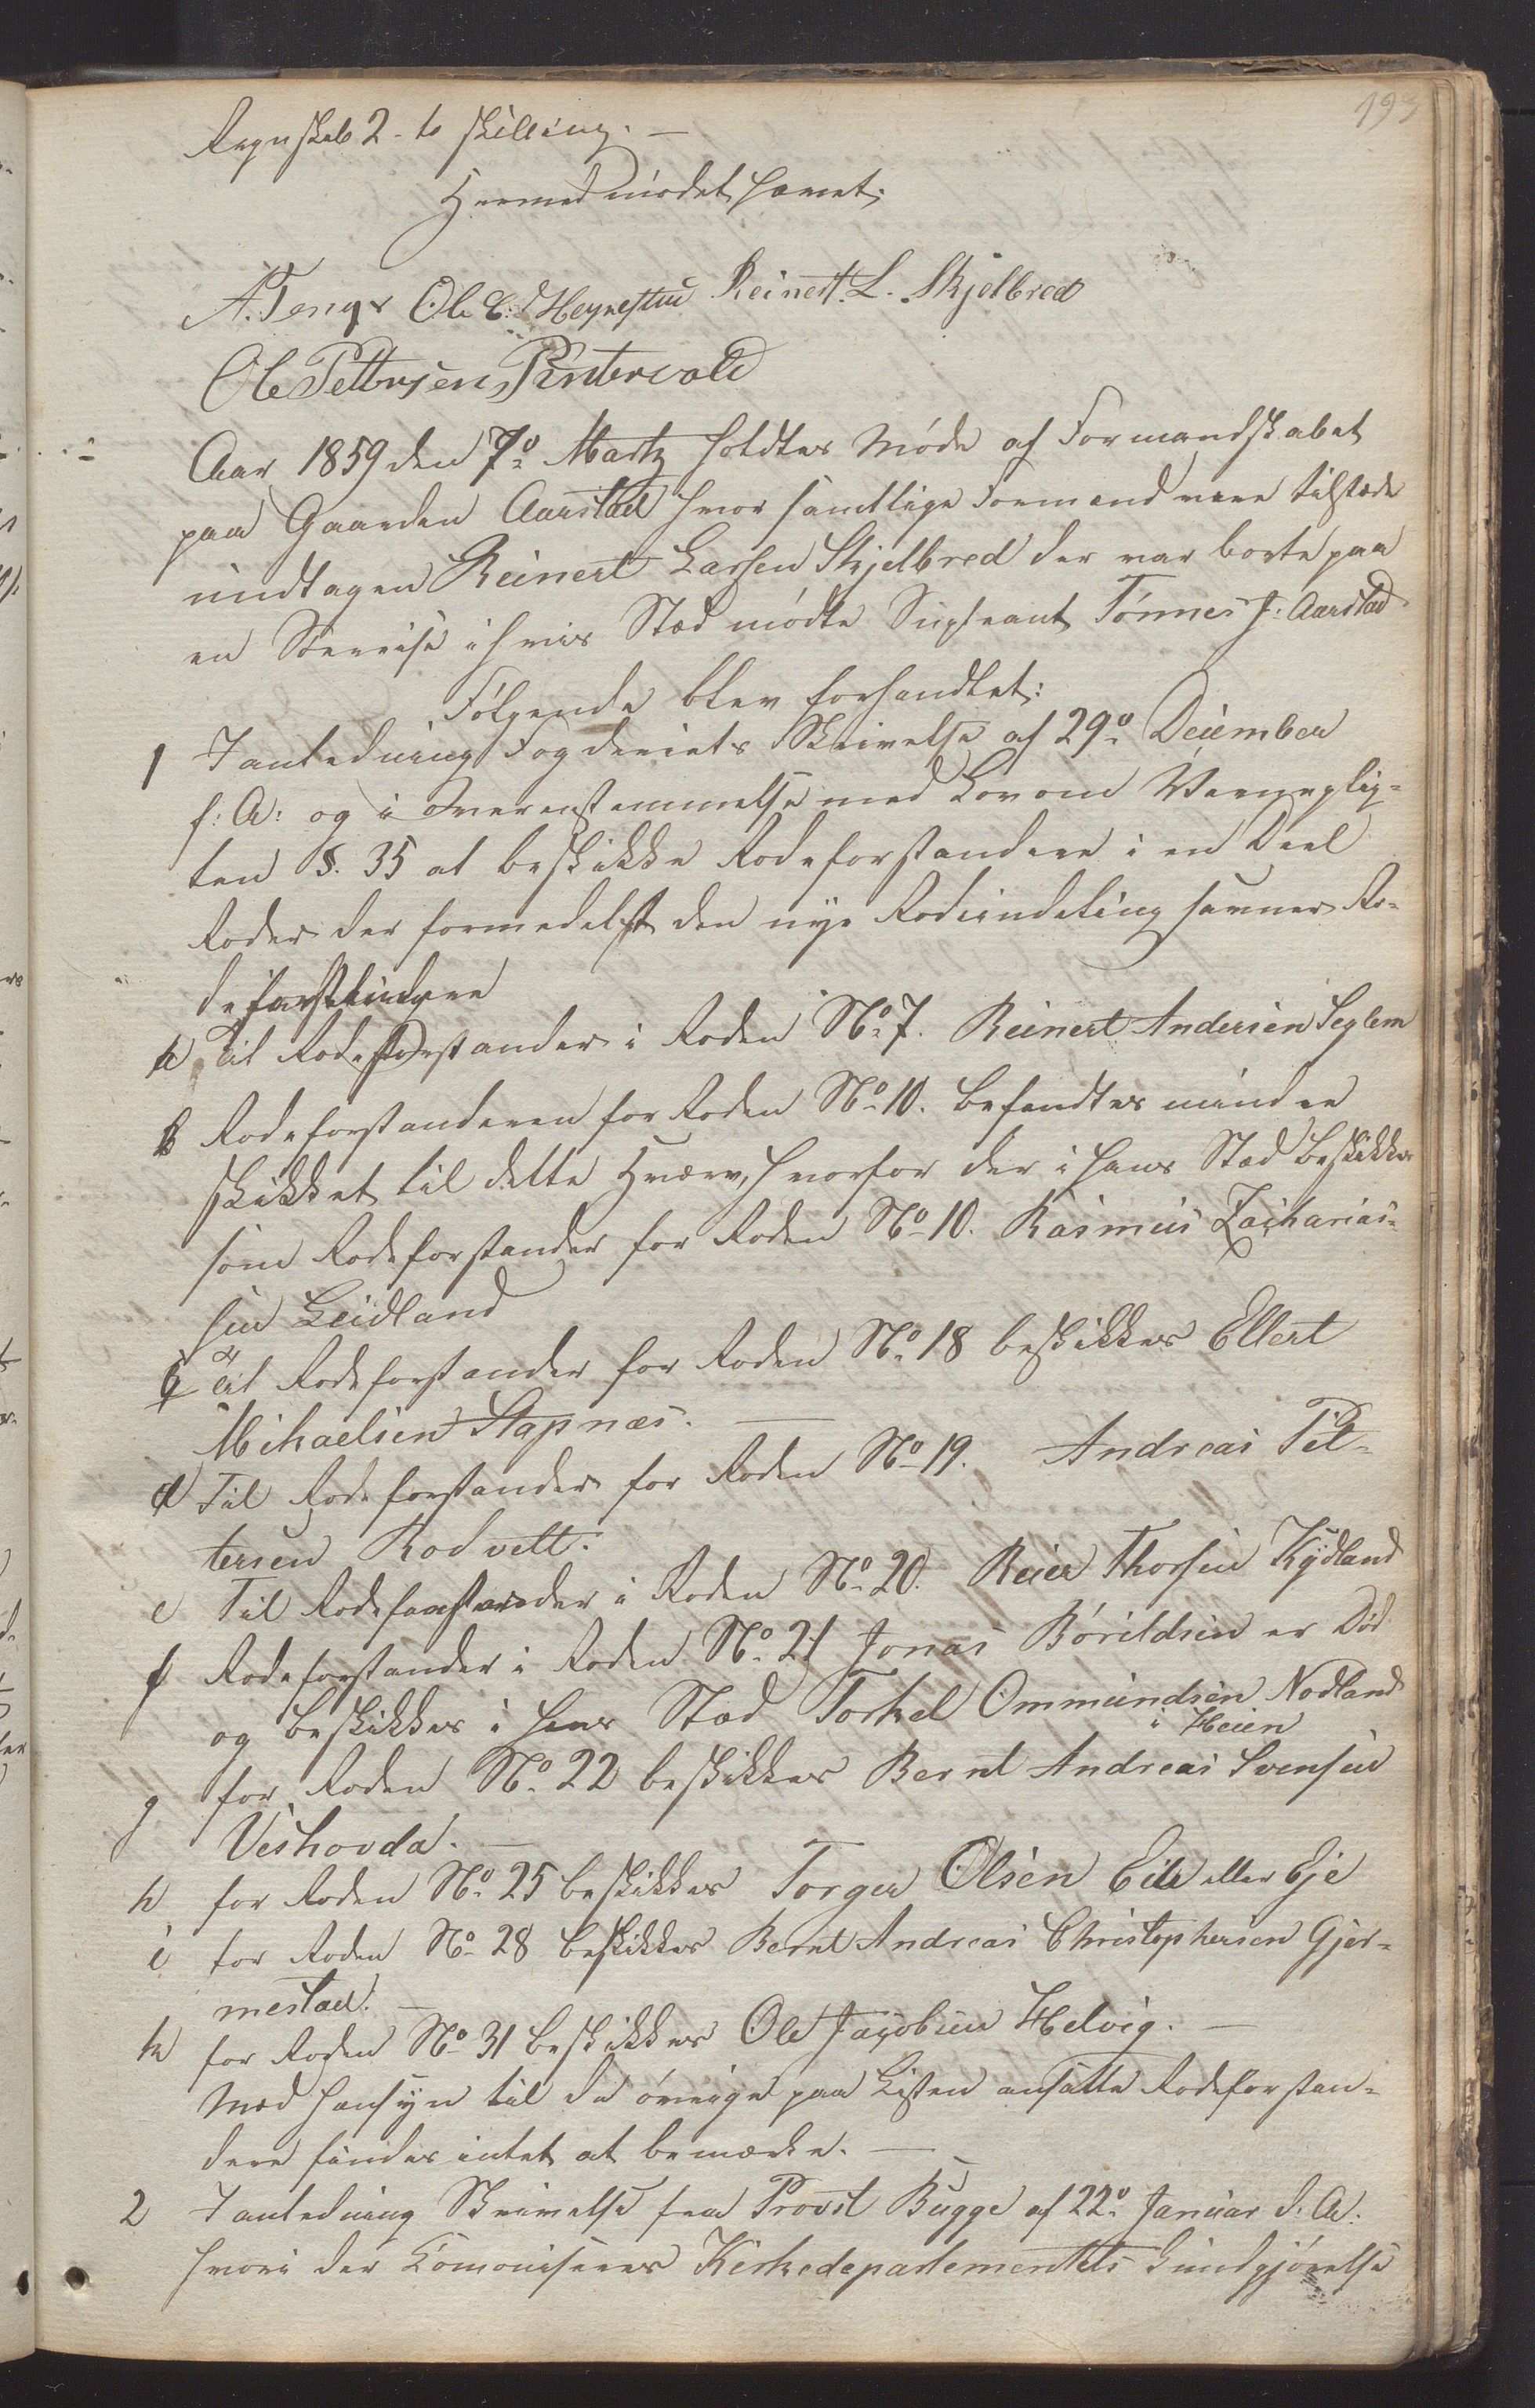 193
Regnskab 2-to Skilling. —
Hermed mødet hævet.
A. Tengs Ole E. Hegrestad Reinert L. Skjelbred
Ole Pettersen Puntervold
Aar 1859 den 7º Martz holdtes Møde af Formandskabet
paa Gaarden Aarstad hvor samtlige Formænd vare tilstæde
undtagen Reinert Larsen Skjelbred der var borte paa
en Søreise i hvis Stæd mødte Supleant Tønnes J: Aarstad
Følgende blev forhandlet:
1 I anledning Fogderiets Skrivelse af 29º December
f: A: og i Overenstemmelse med Lov om Værneplig-
ten §. 35 at beskikke Rodeforstandere i en Deel
Roder der formedelst den nye Rodeindeling savner Ro-
deforstandere
a Til Rodeforstander i Roden Nº 7. Reinert Andersen Seglem
b Rodeforstanderen for Roden Nº 10. befandtes mindre
skikket til dette Hværv, hvorfor der i hans Stæd beskikkes
som Rodeforstander for Roden Nº 10. Rasmus Zacharias-
sen Leidland
c Til Rodeforstander for Roden Nº 18 beskikkes Ellert
Mikaelsen Stapnæs. —
d Til Rodeforstander for Roden Nº 19. Andreas Pet-
tersen Rodvelt.
e Til Rodeforstander i Roden Nº 20. Reier Thorsen Kydland
f Rodeforstander i Roden Nº 21 Jonas Børildsen er Død
og beskikkes i hans Stæd Torkel Ommundsen Nodland
i Heien
g for Roden Nº 22 beskikkes Bernt Andreas Svensen
Veshovda. —
h for Roden Nº 25 beskikkes Torger Olsen Eie eller Eje
i for Roden Nº 28 beskikkes Bernt Andreas Christophersen Gjer-
mestad. —
k for Roden Nº 31 beskikkes Ole Jacobsen Helvig. —
Med Hensyn til de øvrige paa Listen ansatte Rodeforstan-
dere findes intet at bemærke. —
2 I anledning Skrivelse fra Provst Bugge af 22º Januar d: A.
hvori der Komoniseres Kirkedepartementets Kundgjørelse